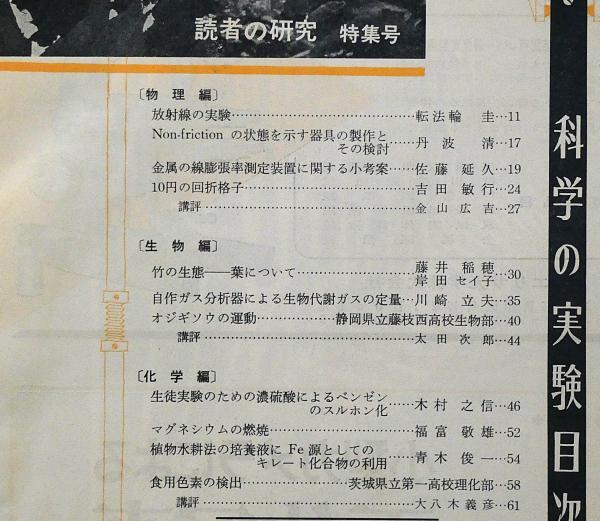 読者の研究 特集号
科学の実験目次
〔物理編〕
放射線の実験……………………………………転法輪 圭…11
Non-friction の状態を示す器具の製作と
その検討……丹波 清…17
金属の線膨張率測定装置に関する小考案……佐藤延久…19
10円の回折格子……………………………………吉田敏行…24
講評……………………………………金山広吉…27
〔生物編〕
竹の生態――葉について……………………藤井稲穂
岸田セイ子…30
自作ガス分析器による生物代謝ガスの定量…川崎立夫…35
オジギソウの運動……………静岡県立藤枝西高校生物部…40
講評……………………………………太田次郎…44
〔化学編〕
生徒実験のための濃硫酸によるベンゼン
のスルホン化……木村之信…46
マグネシウムの燃焼……………………………福富敬雄…52
植物水耕法の培養液に Fe 源としての
キレート化合物の利用……青木俊一…54
食用色素の検出………………茨城県立第一高校理化部…58
講評……………………………………大八木義彦…61